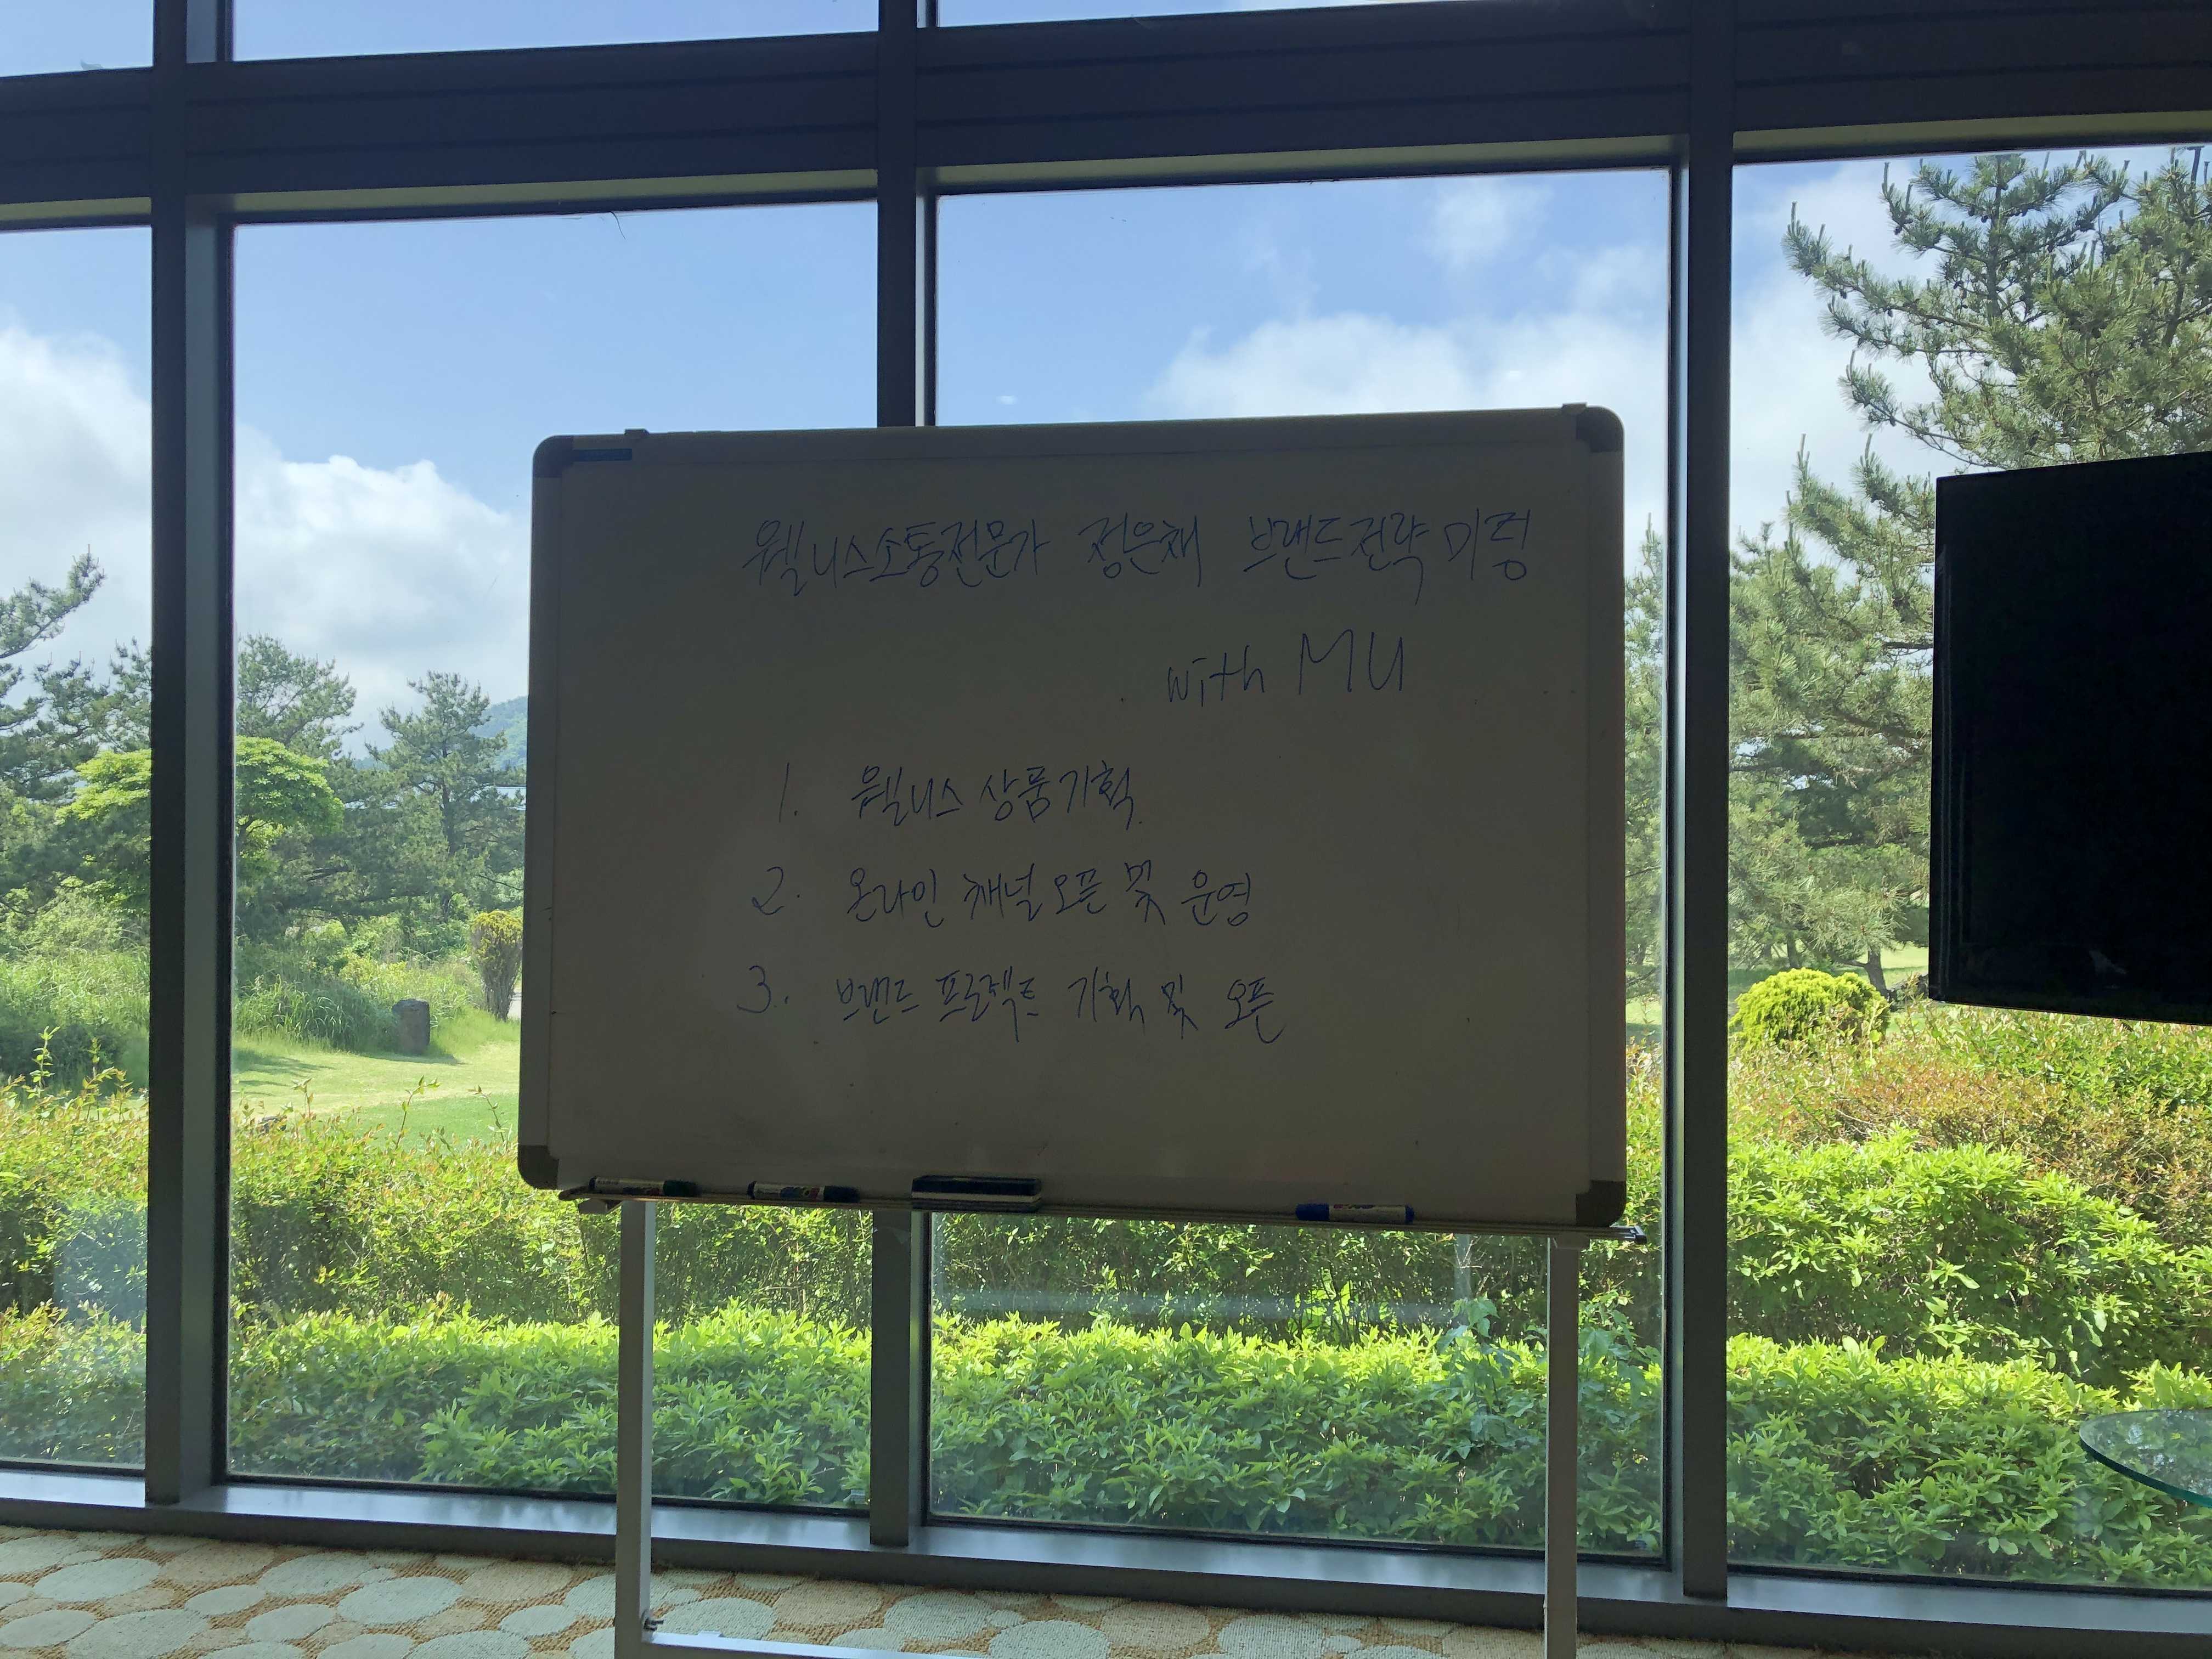 웰니스소통전문가 정은채 브랜드전략미팅
with MU
1. 웰니스 상품기획
2. 온라인 채널오픈 및 운영
3. 브랜드 프로젝트 기획 및 오픈